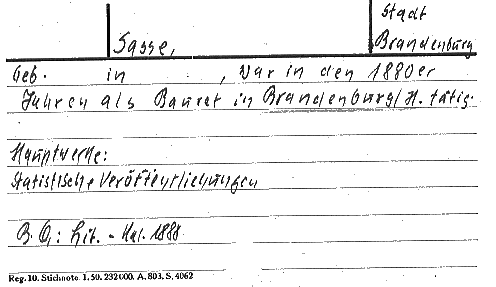 Stadt
Sasse, Brandenburg
Geb. in , war in den 1880er
Jahren als Baurat in Brandenburg/H. tätig.
Hauptwerke:
Statistische Veröffentlichungen
B. Q.: Lit. - Kal. 1888
Reg. 10. Stichnote. 1. 50. 232000. A. 803. S. 4062